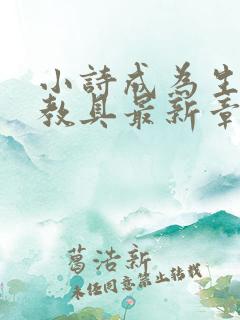 小詩成為生
教具最新章
葛浩新
未经同意禁止转载